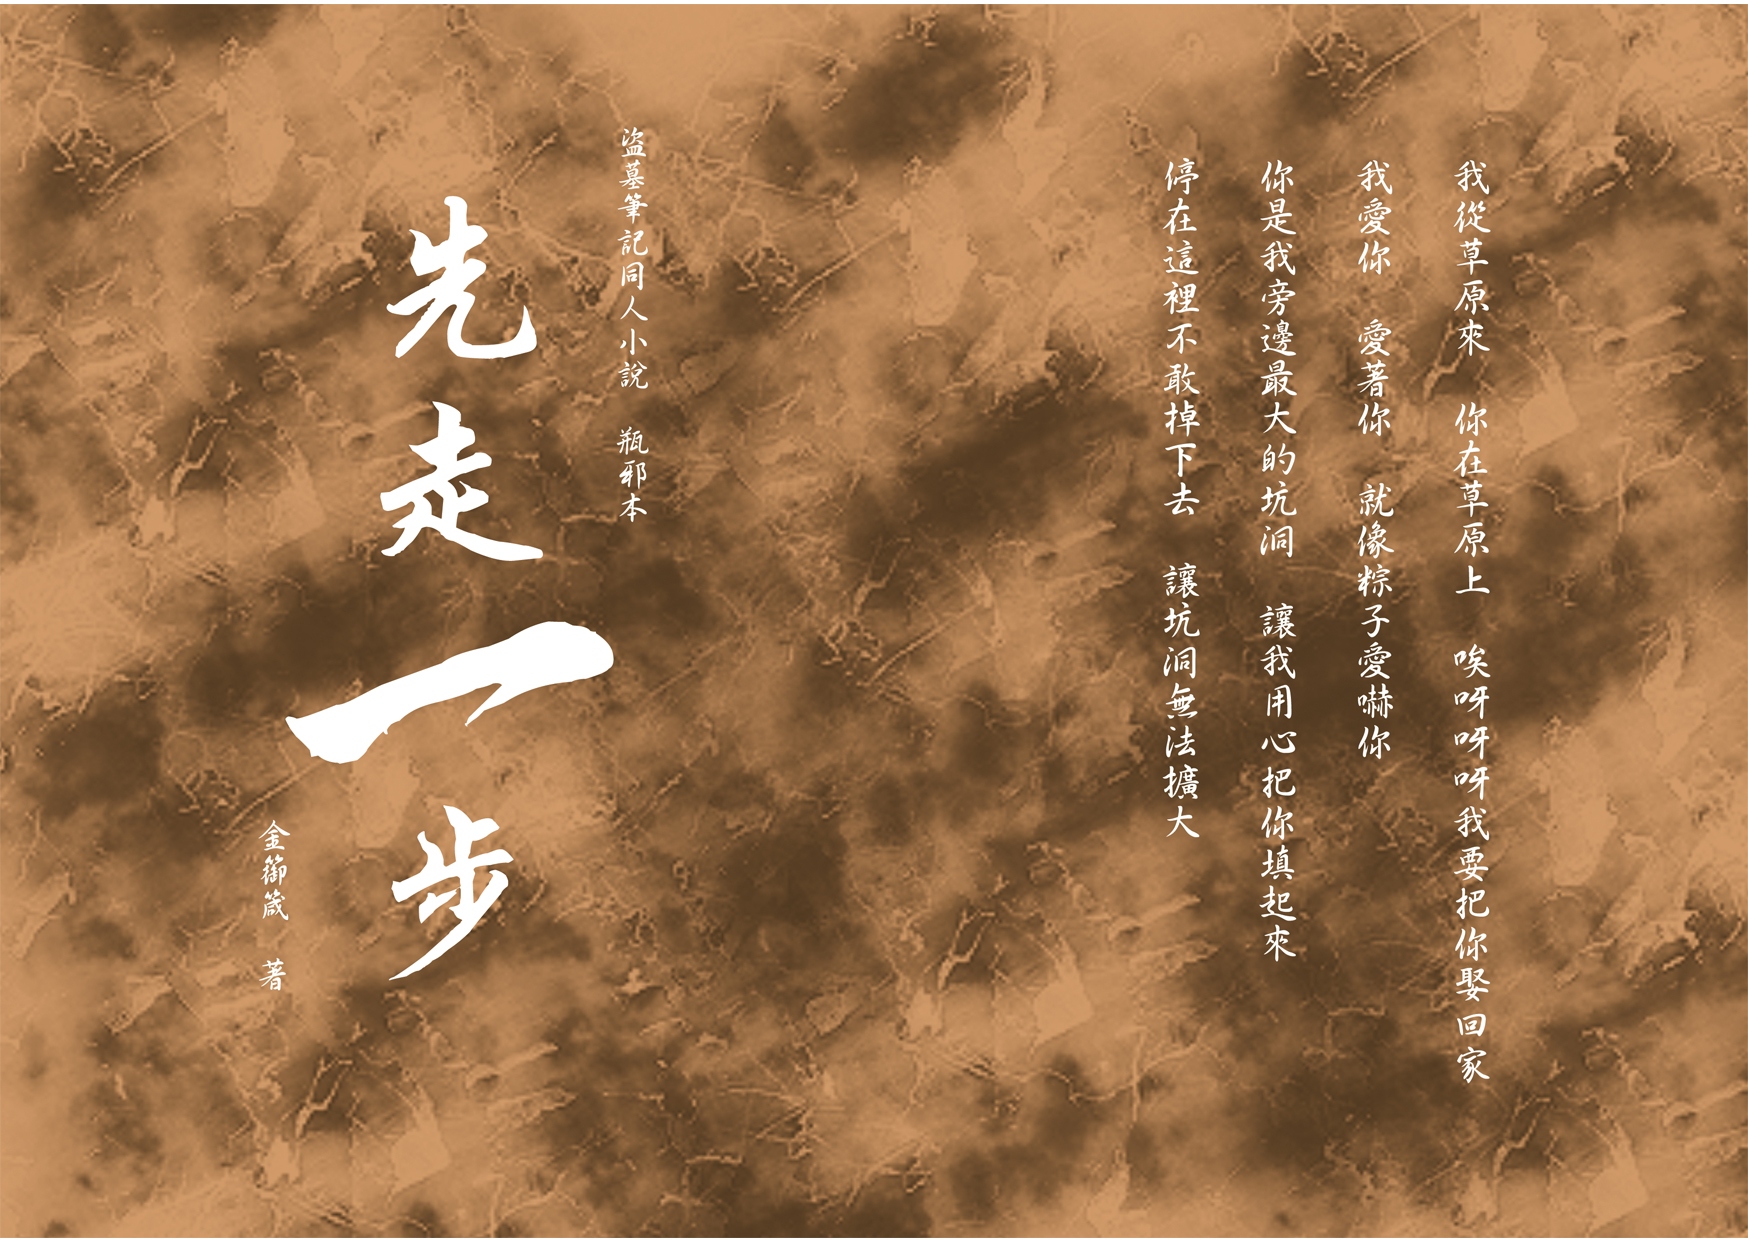 我從草原來　你在草原上　唉呀呀呀我要把你娶回家
我愛你　愛著你　就像粽子愛嚇你
你是我旁邊最大的坑洞　讓我用心把你填起來
停在這裡不敢掉下去　讓坑洞無法擴大
盜墓筆記同人小說　瓶邪本
先走一步
金籞箴　著